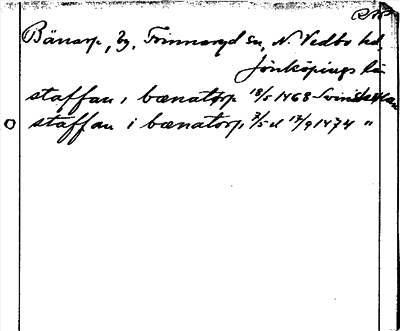 Bänarp, By, Frinnaryd sn, N. Vedbo hd
Jönköpings län
staffan i bænatorp 18/5 1468
staffan i bænatorp 3/5 el 17/9 1474 "